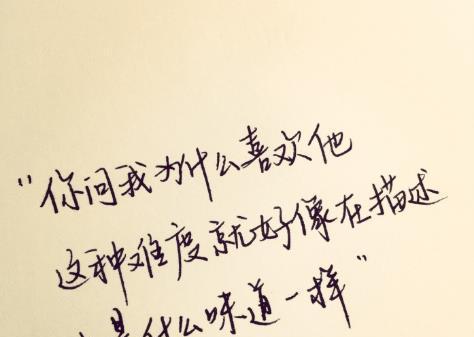 "你问我为什么喜欢他
这种难度就好像在描述
是什么味道一样"